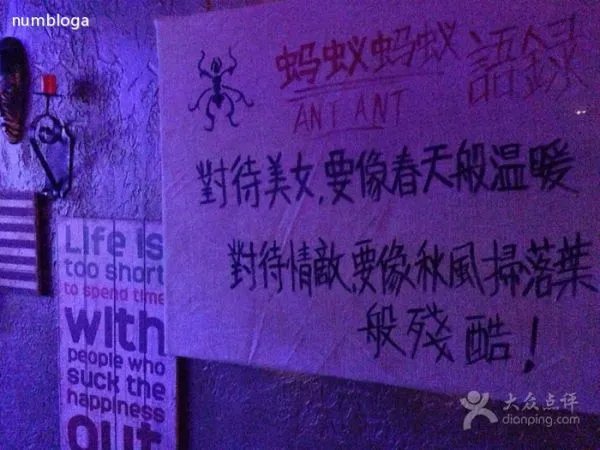 numbloga
蚂蚁蚂蚁 語録
ANT ANT
對待美女,要像春天般温暖
對待情敵,要像秋風掃落葉
般殘酷!
Life is
too short
to spend time
with
people who
suck the
happiness
out
大众点评
dianping.com